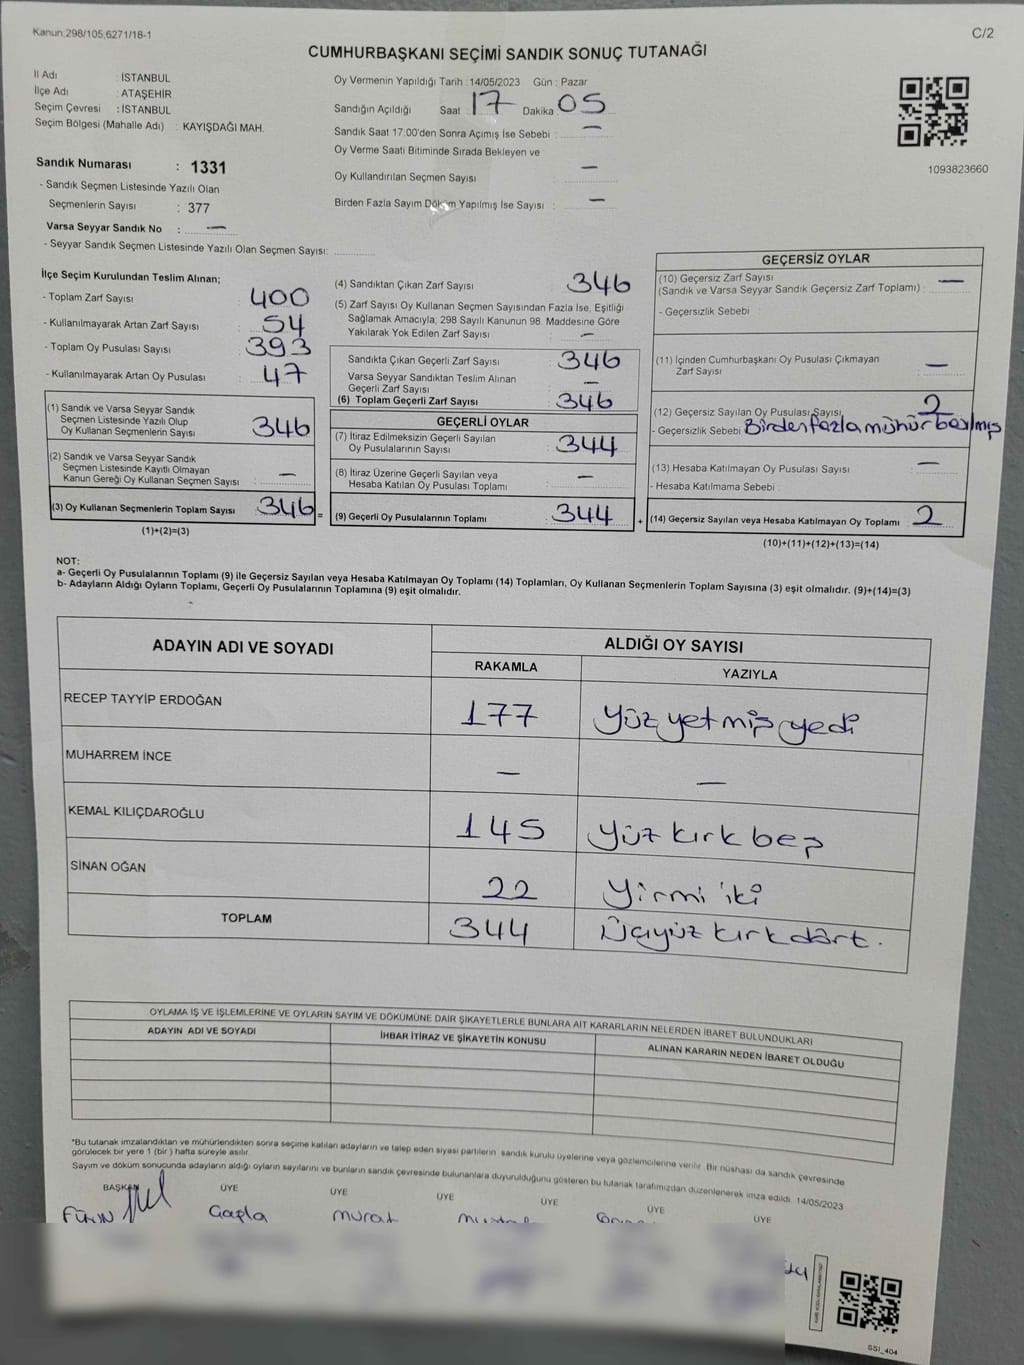 Kanun;298/105;6271/18-1
C/2
CUMHURBAŞKANI SEÇİMİ SANDIK SONUÇ TUTANAĞI
İl Adı : İSTANBUL
İlçe Adı : ATAŞEHİR
Seçim Çevresi : İSTANBUL
Seçim Bölgesi (Mahalle Adı) : KAYIŞDAĞI MAH.
Sandık Numarası : 1331
- Sandık Seçmen Listesinde Yazılı Olan
Seçmenlerin Sayısı : 377
Varsa Seyyar Sandık No : —
- Seyyar Sandık Seçmen Listesinde Yazılı Olan Seçmen Sayısı:
Oy Vermenin Yapıldığı Tarih : 14/05/2023 Gün : Pazar
Sandığın Açıldığı Saat : 17 Dakika : 05
Sandık Saat 17:00'den Sonra Açımış İse Sebebi : —
Oy Verme Saati Bitiminde Sırada Bekleyen ve
Oy Kullandırılan Seçmen Sayısı : —
Birden Fazla Sayım Döküm Yapılmış İse Sayısı : —
1093823660
İlçe Seçim Kurulundan Teslim Alınan;
- Toplam Zarf Sayısı : 400
- Kullanılmayarak Artan Zarf Sayısı : 54
- Toplam Oy Pusulası Sayısı : 393
- Kullanılmayarak Artan Oy Pusulası : 47
(1) Sandık ve Varsa Seyyar Sandık
Seçmen Listesinde Yazılı Olup
Oy Kullanan Seçmenlerin Sayısı : 346
(2) Sandık ve Varsa Seyyar Sandık
Seçmen Listesinde Kayıtlı Olmayan
Kanun Gereği Oy Kullanan Seçmen Sayısı : —
(3) Oy Kullanan Seçmenlerin Toplam Sayısı : 346 =
(1)+(2)=(3)
(4) Sandıktan Çıkan Zarf Sayısı : 346
(5) Zarf Sayısı Oy Kullanan Seçmen Sayısından Fazla İse, Eşitliği
Sağlamak Amacıyla, 298 Sayılı Kanunun 98. Maddesine Göre
Yakılarak Yok Edilen Zarf Sayısı : —
Sandıkta Çıkan Geçerli Zarf Sayısı : 346
Varsa Seyyar Sandıktan Teslim Alınan
Geçerli Zarf Sayısı : —
(6) Toplam Geçerli Zarf Sayısı : 346
GEÇERLİ OYLAR
(7) İtiraz Edilmeksizin Geçerli Sayılan
Oy Pusulalarının Sayısı : 344
(8) İtiraz Üzerine Geçerli Sayılan veya
Hesaba Katılan Oy Pusulası Toplamı : —
(9) Geçerli Oy Pusulalarının Toplamı : 344 +
GEÇERSİZ OYLAR
(10) Geçersiz Zarf Sayısı
(Sandık ve Varsa Seyyar Sandık Geçersiz Zarf Toplamı) : —
- Geçersizlik Sebebi :
(11) İçinden Cumhurbaşkanı Oy Pusulası Çıkmayan
Zarf Sayısı : —
(12) Geçersiz Sayılan Oy Pusulası Sayısı : 2
- Geçersizlik Sebebi Birden fazla mühür basılmış
(13) Hesaba Katılmayan Oy Pusulası Sayısı : —
- Hesaba Katılmama Sebebi :
(14) Geçersiz Sayılan veya Hesaba Katılmayan Oy Toplamı : 2
(10)+(11)+(12)+(13)=(14)
NOT:
a- Geçerli Oy Pusulalarının Toplamı (9) ile Geçersiz Sayılan veya Hesaba Katılmayan Oy Toplamı (14) Toplamları, Oy Kullanan Seçmenlerin Toplam Sayısına (3) eşit olmalıdır. (9)+(14)=(3)
b- Adayların Aldığı Oyların Toplamı, Geçerli Oy Pusulalarının Toplamına (9) eşit olmalıdır.
ADAYIN ADI VE SOYADI
ALDIĞI OY SAYISI
RAKAMLA YAZIYLA
RECEP TAYYİP ERDOĞAN 177 Yüz yetmiş yedi
MUHARREM İNCE — —
KEMAL KILIÇDAROĞLU 145 Yüz kırk beş
SİNAN OĞAN 22 Yirmi iki
TOPLAM 344 Üçyüz kırk dört.
OYLAMA İŞ VE İŞLEMLERİNE VE OYLARIN SAYIM VE DÖKÜMÜNE DAİR ŞİKAYETLERLE BUNLARA AİT KARARLARIN NELERDEN İBARET BULUNDUKLARI
ADAYIN ADI VE SOYADI İHBAR İTİRAZ VE ŞİKAYETİN KONUSU ALINAN KARARIN NEDEN İBARET OLDUĞU
*Bu tutanak imzalandıktan ve mühürlendikten sonra seçime katılan adayların ve talep eden siyasi partilerin sandık kurulu üyelerine veya gözlemcilerine verilir. Bir nüshası da sandık çevresinde
görülecek bir yere 1 (bir ) hafta süreyle asılır.
Sayım ve döküm sonucunda adayların aldığı oyların sayılarını ve bunların sandık çevresinde bulunanlara duyurulduğunu gösteren bu tutanak tarafımızdan düzenlenerek imza edildi. 14/05/2023
BAŞKAN ÜYE ÜYE ÜYE ÜYE ÜYE ÜYE
Murat
SSİ_404